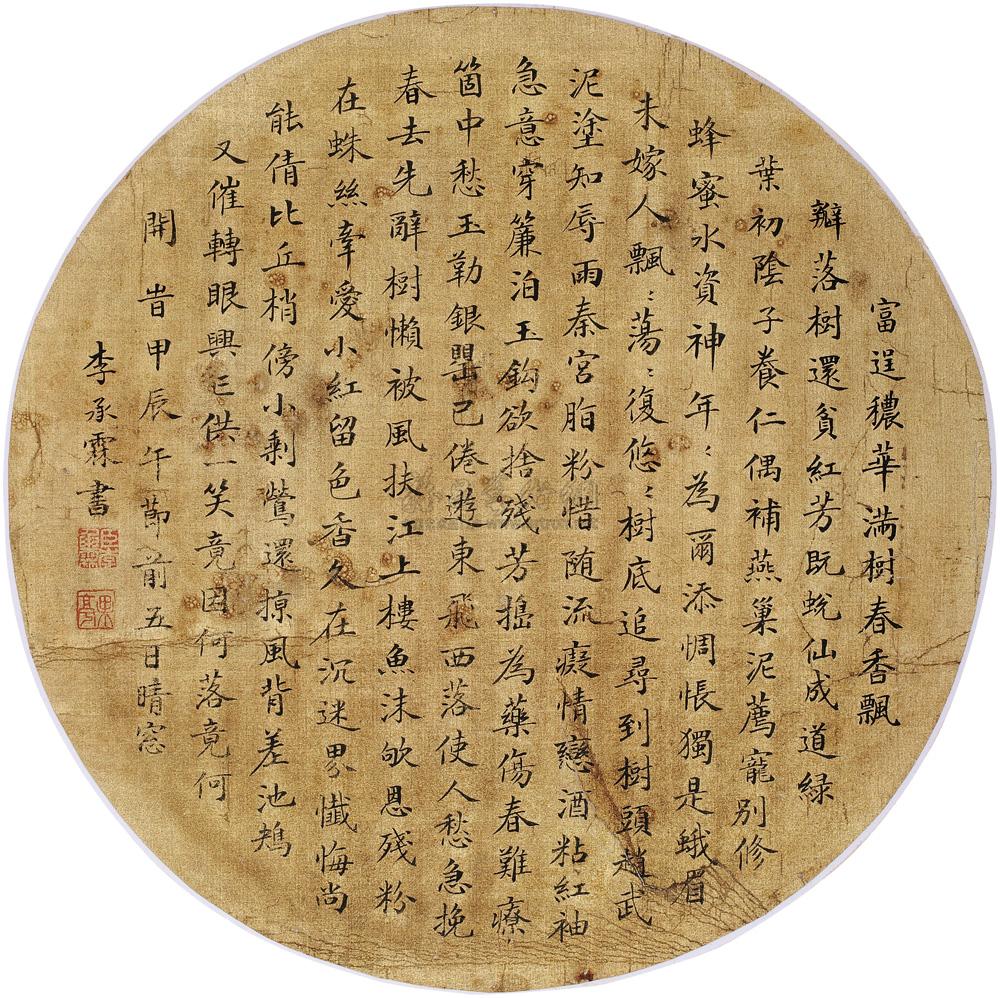 富逞穠華滿樹春香飄
瓣落樹還貧紅芳既蛻仙成道綠
葉初陰子養仁偶補燕巢泥薦寵別修
蜂蜜水資神年〻為爾添惆悵獨是蛾眉
未嫁人飄〻蕩〻復悠〻樹底追尋到樹頭趙武
泥塗知辱雨秦宮脂粉惜隨流癡情戀酒粘紅袖
急意穿簾泊玉鈎欲捨殘芳搗為藥傷春難療
箇中愁玉勒銀罌已倦遊東飛西落使人愁急挽
春去先辭樹懶被風扶江上樓魚沫欱恩殘粉
在蛛絲牽愛小紅留色香久在沉迷界懺悔尚
能倩比丘梢傍小剩鶯還掠風背差池鴂
又催轉眼興亡供一笑竟因何落竟何
開 旹甲辰午節前五日晴窓
李承霖書